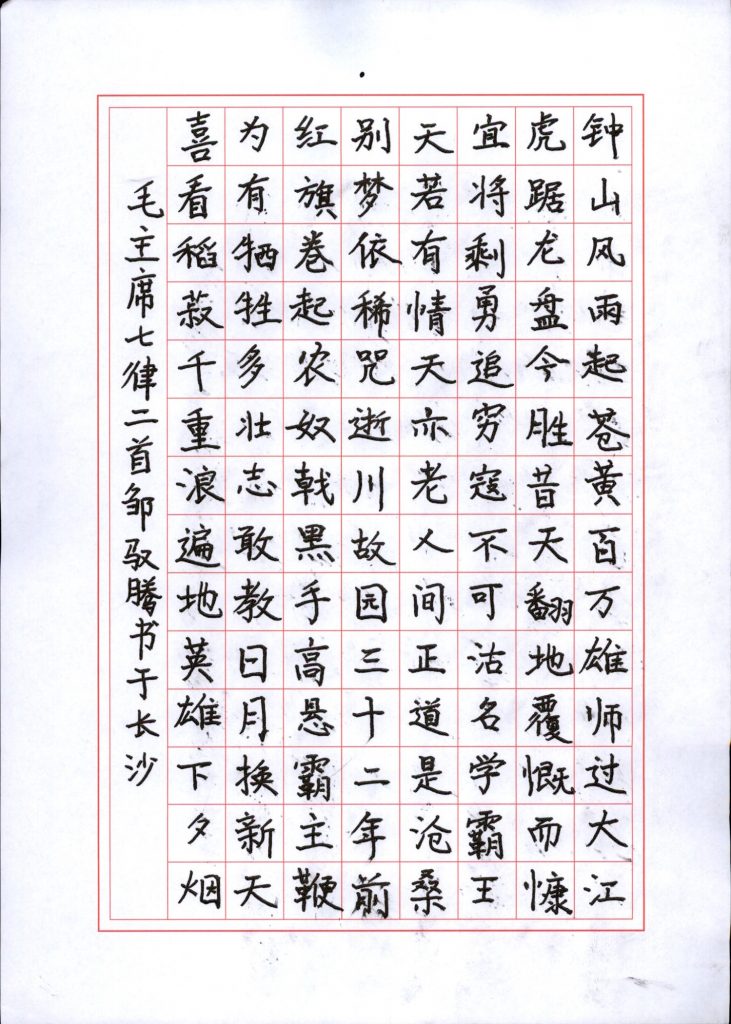 钟山风雨起苍黄百万雄师过大江
虎踞龙盘今胜昔天翻地覆慨而慷
宜将剩勇追穷寇不可沽名学霸王
天若有情天亦老人间正道是沧桑
别梦依稀咒逝川故园三十二年前
红旗卷起农奴戟黑手高悬霸主鞭
为有牺牲多壮志敢教日月换新天
喜看稻菽千重浪遍地英雄下夕烟
毛主席七律二首邹驭腾书于长沙